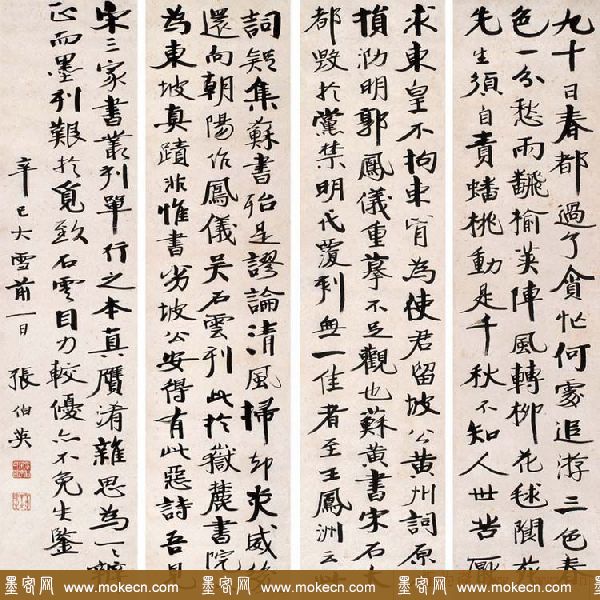 九十日春都過了貪忙何處追游三色春
色一分愁雨翻榆莢陣風轉柳花毬閬苑
先生須自責蟠桃動是千秋不知人世苦厭
求東皇不拘束肯為使君留坡公黃州詞原
損泐明郭鳳儀重摹不足觀也蘇黃書宋石
都毀於黨禁明代覆刻無一佳者至王鳳洲云
詞疑集蘇書殆是謬論清風掃却炎威
還向朝陽作鳳儀吳石雲刊此於嶽麓書院
為東坡真蹟非惟書劣坡公安得有此惡詩吾見
宋三家書叢列單行之本真贗淆雜思為一一
正而墨刊艱於覓致石雲目力較優亦不免失鑒
辛巳大雪前一日
張伯英
墨客网 www.mokecn.com 墨客网 www.mokecn.com 墨客网 www.mokecn.com 墨客网 www.mokecn.com